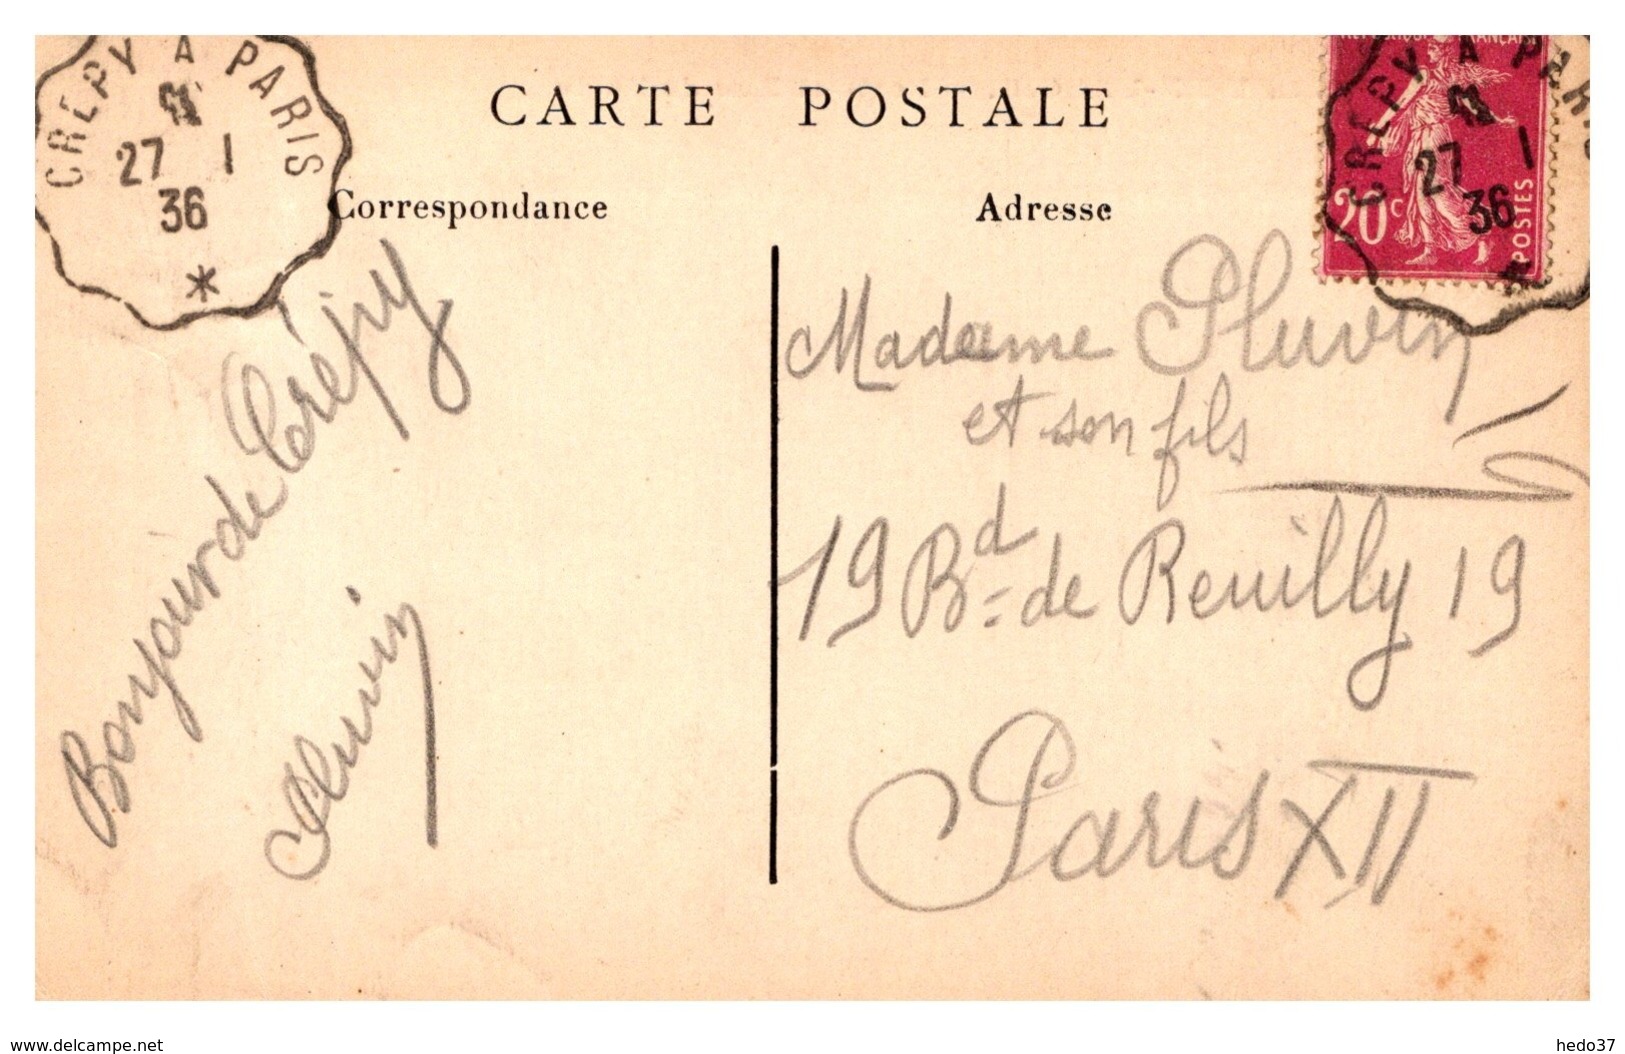 CREPY A PARIS
27 1
36
CARTE POSTALE
REPUBLIQUE FRANÇAISE
20c
POSTES
CREPY A PARIS
27 1
36
Correspondance
Bonjour de Crépy
Pluvin
Adresse
Madame Pluvin
et son fils
19 Bd de Reuilly 19
Paris XII
www.delcampe.net
hedo37